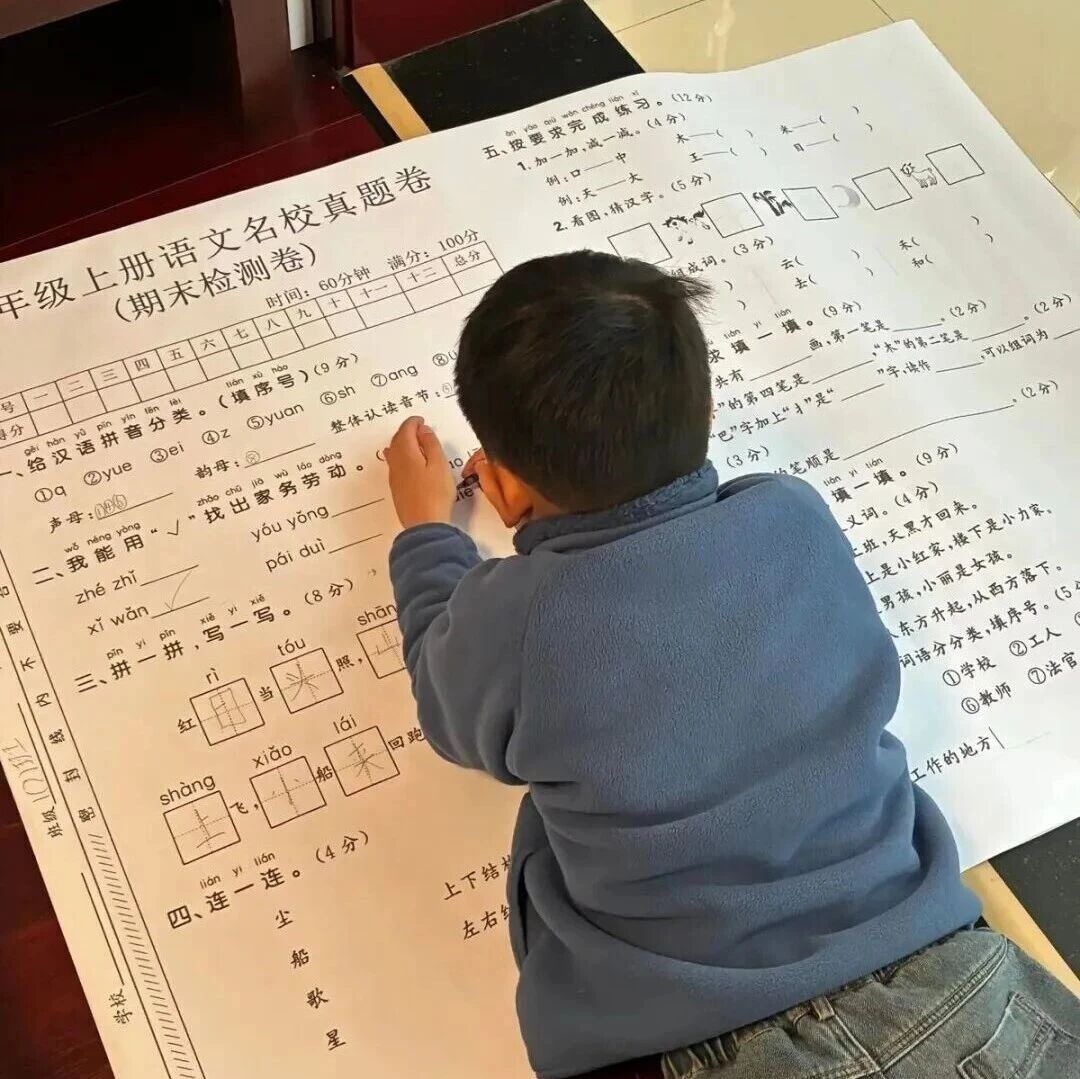 年级上册语文名校真题卷
(期末检测卷)
时间：60分钟 满分：100分
号 一 二 三 四 五 六 七 八 九 十 十一 十二 总分
得分
gěi hàn yǔ pīn yīn fēn lèi tián xù hào
一、给汉语拼音分类。(填序号)(9分)
①q ②yue ③ei ④z ⑤yuan ⑥sh ⑦ang ⑧
声母： 韵母：⑧ 整体认读音节：
wǒ néng yòng zhǎo chū jiā wù láo dòng
二、我能用“✓”找出家务劳动。
zhé zhǐ yóu yǒng
xǐ wǎn ✓ pái duì
pīn yi pīn xiě yi xiě
三、拼一拼，写一写。(8分)
rì tóu shān
红 日 当 头 照，
shàng xiǎo lái
上 飞，小 船 来 回跑
lián yi lián
四、连一连。(4分)
尘
船
歌
星
上下结
左右
àn yāo qiú wán chéng liàn xí
五、按要求完成练习。(12分)
1.加一加，减一减。(4分)
例：口——中 木——( ) 米——( )
例：天——大 王——( ) 日——( )
2.看图，猜汉字。(5分)
组成词。(3分)
云( ) 禾( )
去( ) 和( )
求填一填。(9分)
tián yi tián
共有 画，第一笔是 。(2分)
”的第四笔是 ，“木”的第二笔是 。(2分)
“巴”字加上“扌”是“ ”字，读作 ，可以组词为
。(2分)
笔顺是 。
(3分)
tián yi tián
填一填。(9分)
义词。(4分)
上班，天黑才回来。
上是小红家，楼下是小力家。
男孩，小丽是女孩。
东方升起，从西方落下。
词语分分类，填序号。(5分
①学校 ②工人
⑥教师 ⑦法官
工作的地方
班级
学校
要
不
内
线
封
密